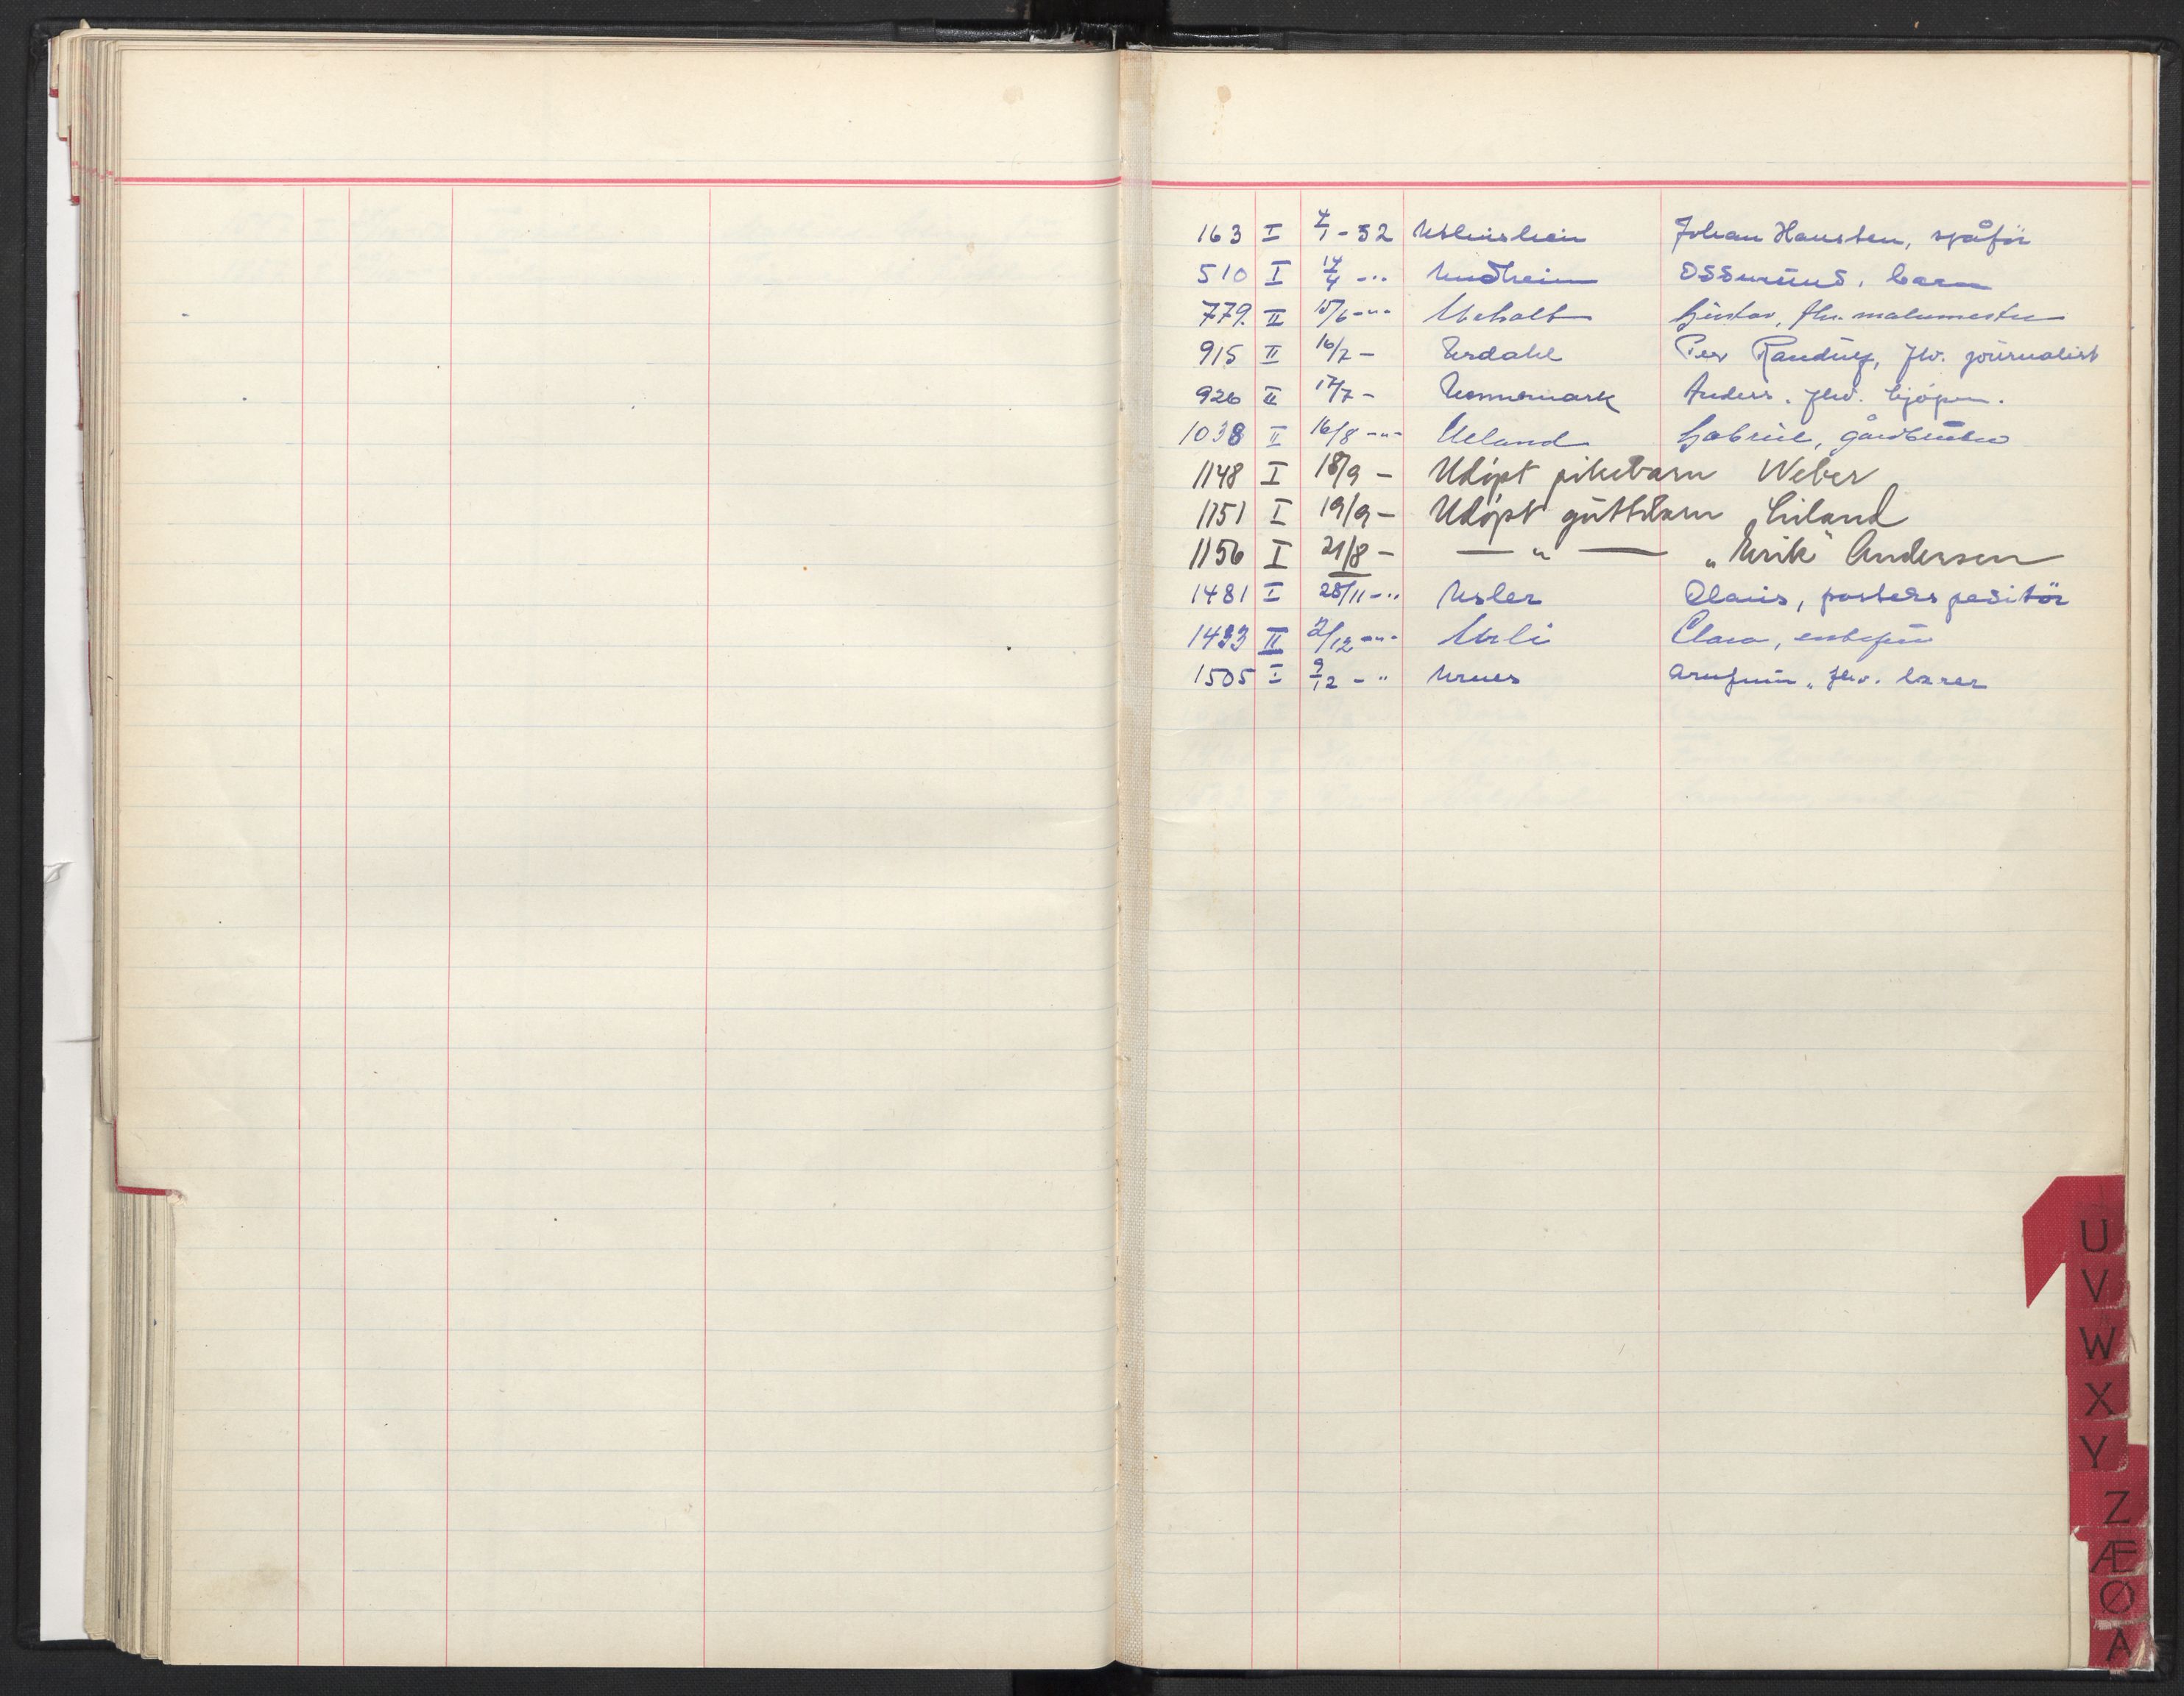 163 I 4/1 - 52 Johan Hansten, sjåför
510 I 14/4 -"- Undheim Oddmund, barn
779. II 15/6 -"- Ueholt Gustav, fhv. malermester
915 II 16/7 - Urdahl Per Randulf, fhv. journalist
926 II 17/7 - Unnemark Anders, fhv. kjøpm.
1038 II 16/8 -"- Ueland Gabriel, gårdbruker
1148 I 18/9 - Udöpt pikebarn Weber
1151 I 19/9 - Udöpt guttebarn Liland
1156 I 21/8 - — " — "Ulrik" Andersen
1481 I 28/11 -" Usler Olaus, postekspeditör
1493 II 2/12 -"- Urli Clara, enkefru
1505 I 9/12 - " Urnes Arnfinn, fhv. lærer
U
V
W
X
Y
Z
Æ
Ø
A